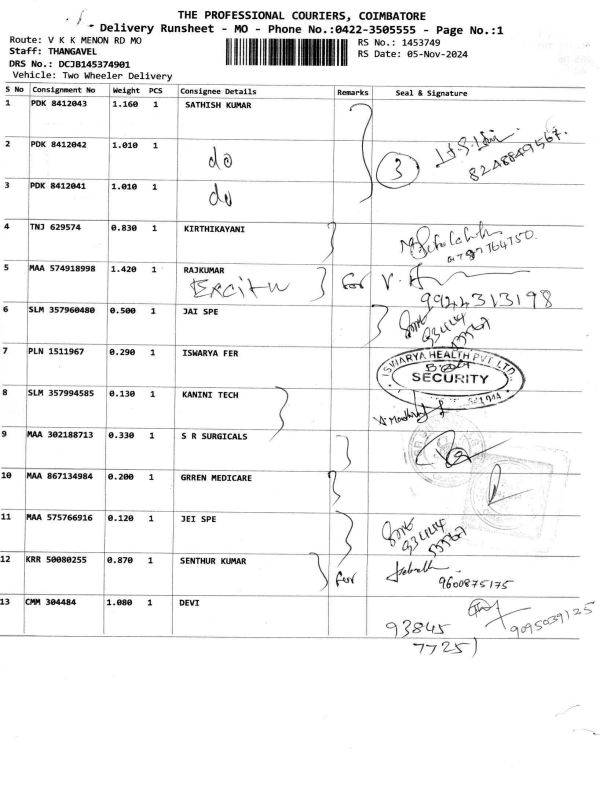 THE PROFESSIONAL COURIERS, COIMBATORE
Delivery Runsheet - MO - Phone No.:0422-3505555 - Page No.:1
Route: V K K MENON RD MO
RS No.: 1453749
Staff: THANGAVEL
RS Date: 05-Nov-2024
DRS No.: DCJB145374901
Vehicle: Two Wheeler Delivery
S No Consignment No Weight PCS Consignee Details Remarks Seal & Signature
1 PDK 8412043 1.160 1 SATHISH KUMAR
2 PDK 8412042 1.010 1 do 3 8248849567.
3 PDK 8412041 1.010 1 do
4 TNJ 629574 0.830 1 KIRTHIKAYANI
5 MAA 574918998 1.420 1 RAJKUMAR for
9944313198
6 SLM 357960480 0.500 1 JAI SPE
7 PLN 1511967 0.290 1 ISWARYA FER
ISWARYA HEALTH PVT LTD
SECURITY
8 SLM 357994585 0.130 1 KANINI TECH
9 MAA 302188713 0.330 1 S R SURGICALS
10 MAA 867134984 0.200 1 GRREN MEDICARE
11 MAA 575766916 0.120 1 JEI SPE
12 KRR 50080255 0.870 1 SENTHUR KUMAR for
9600875175
13 CMM 304484 1.080 1 DEVI
9095039125
93845
77251